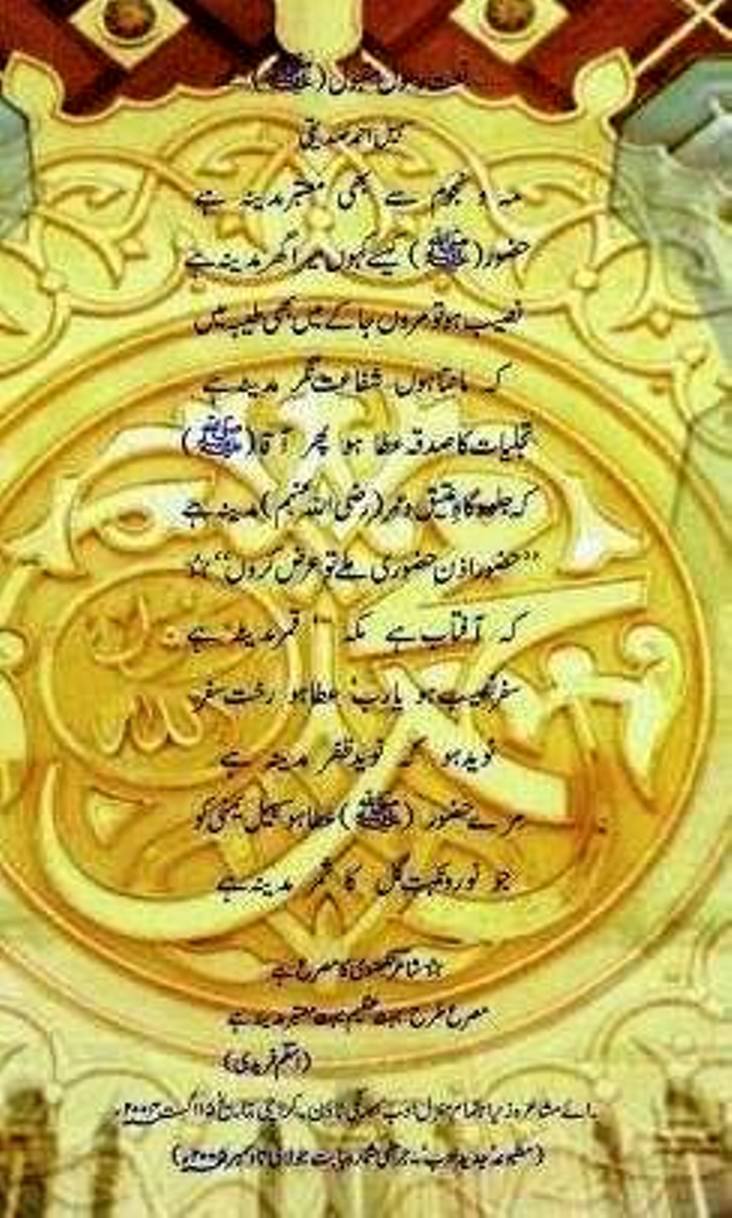 نعت رسول مقبول (ﷺ)
احمد صدیقی
مہ و نجوم سے بھی معتبر مدینہ ہے
حضور (ﷺ) کیسے کہوں میرا گھر مدینہ ہے
نصیب ہو تو مروں جا کے میں بھی طیبہ میں
کہ مانتا ہوں شفاعت نگر مدینہ ہے
تجلیات کا صدقہ عطا ہو پھر آقا (ﷺ)
کہ جلوہ گاہِ عتیق و عمر (رضی اللہ عنہم) مدینہ ہے
”حضور اذن حضوری ملے تو عرض کروں“ ☆
کہ آفتاب ہے مکہ قمر مدینہ ہے
سفر نصیب ہو یارب عطا ہو رختِ سفر
نوید ہو کہ نوید ظفر مدینہ ہے
مرے حضور (ﷺ) عطا ہو سہیل یمنی کو
جو نور و نکہتِ گل کا ثمر مدینہ ہے
☆ شاعر لکھنوی کا مصرع ہے
مصرع طرح: بہت عظیم بہت معتبر مدینہ ہے
(اسلم فریدی)
برائے مشاعرہ زیر اہتمام ادب ٹاؤن ۔ کراچی بتاریخ ۱۵ اگست
(مطبوعہ ’جدید ادب‘ ۔ جرمنی شمارہ بابت جولائی تا دسمبر